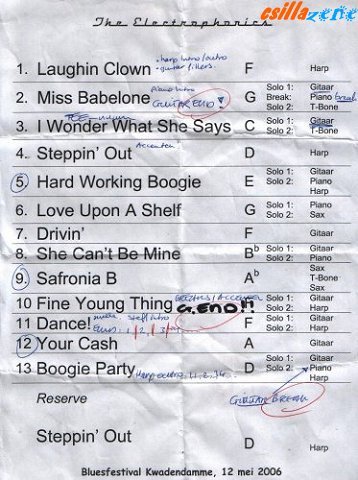 esillazene
The Electrophonics
1. Laughin Clown - harp intro/outro F Harp
- guitar fillers.
2. Miss Babelone piano intro GUITAR END G Solo 1: Gitaar
Break: Piano break
Solo 2: T-Bone
3. I Wonder What She Says C Solo 1: Gitaar
Solo 2: T-Bone
4. Steppin' Out Accenten D Harp
5. Hard Working Boogie E Solo 1: Gitaar
Solo 2: Piano
Harp
6. Love Upon A Shelf G Solo 1: Piano
Solo 2: Sax
7. Drivin' F Solo 1: Gitaar
8. She Can't Be Mine Bb Solo 1: Gitaar
Solo 2: Harp
9. Safronia B Ab Sax
T-Bone
Sax
10 Fine Young Thing BREAKS/ACCENTEN G. END!! Solo 1: Gitaar
Solo 2: Harp
11 Dance! intro F Solo 1: Gitaar
Solo 2: Harp
12 Your Cash A Gitaar
13 Boogie Party Harp outro 1. 2. D Solo 1: Gitaar
Solo 2: Piano
Harp
GUITAR BREAK
Reserve
Steppin' Out D Harp
Bluesfestival Kwadendamme, 12 mei 2006